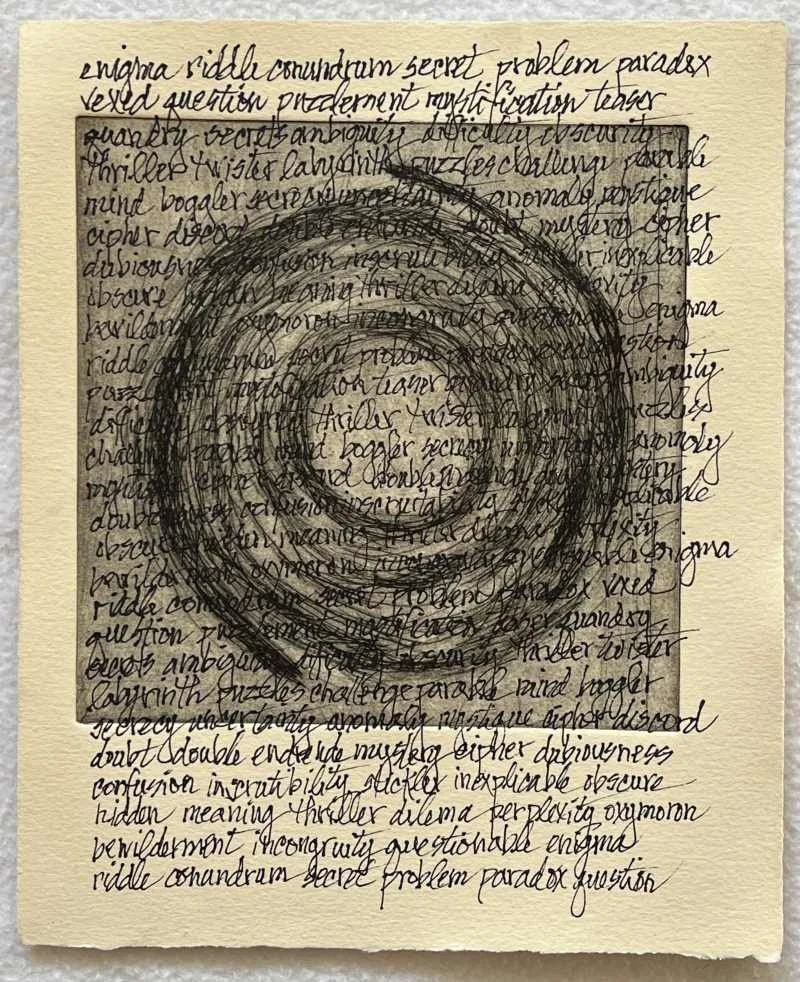 enigma riddle conundrum secret problem paradox
vexed question puzzlement mystification teaser
quandry secrets ambiguity difficulty obscurity
thriller twister labyrinth puzzles challenge parable
mind boggler secrecy uncertainty anomaly mystique
cipher discord double entendre doubt mystery cipher
dubiousness confusion inscrutibility stickler inexplicable
obscure hidden meaning thriller dilema perplexity
bewilderment oxymoron incongruity questionable enigma
riddle conundrum secret problem paradox vexed question
puzzlement mystification teaser quandry secrets ambiguity
difficulty obscurity thriller twister labyrinth puzzles
challenge parable mind boggler secrecy uncertainty anomoly
mystique cipher discord double entendre doubt mystery
dubiousness confusion inscrutability inexplicable
obscure hidden meaning thriller dilema perplexity
bewilderment oxymoron incongruity questionable enigma
riddle conundrum secret problem paradox vexed
question puzzlement mystification teaser quandry
secrets ambiguity difficulty obscurity thriller twister
labyrinth puzzles challenge parable mind boggler
secrecy uncertainty anomaly mystique cipher discord
doubt double entendre mystery cipher dubiousness
confusion inscrutibility stickler inexplicable obscure
hidden meaning thriller dilema perplexity oxymoron
bewilderment incongruity questionable enigma
riddle conundrum secret problem paradox question